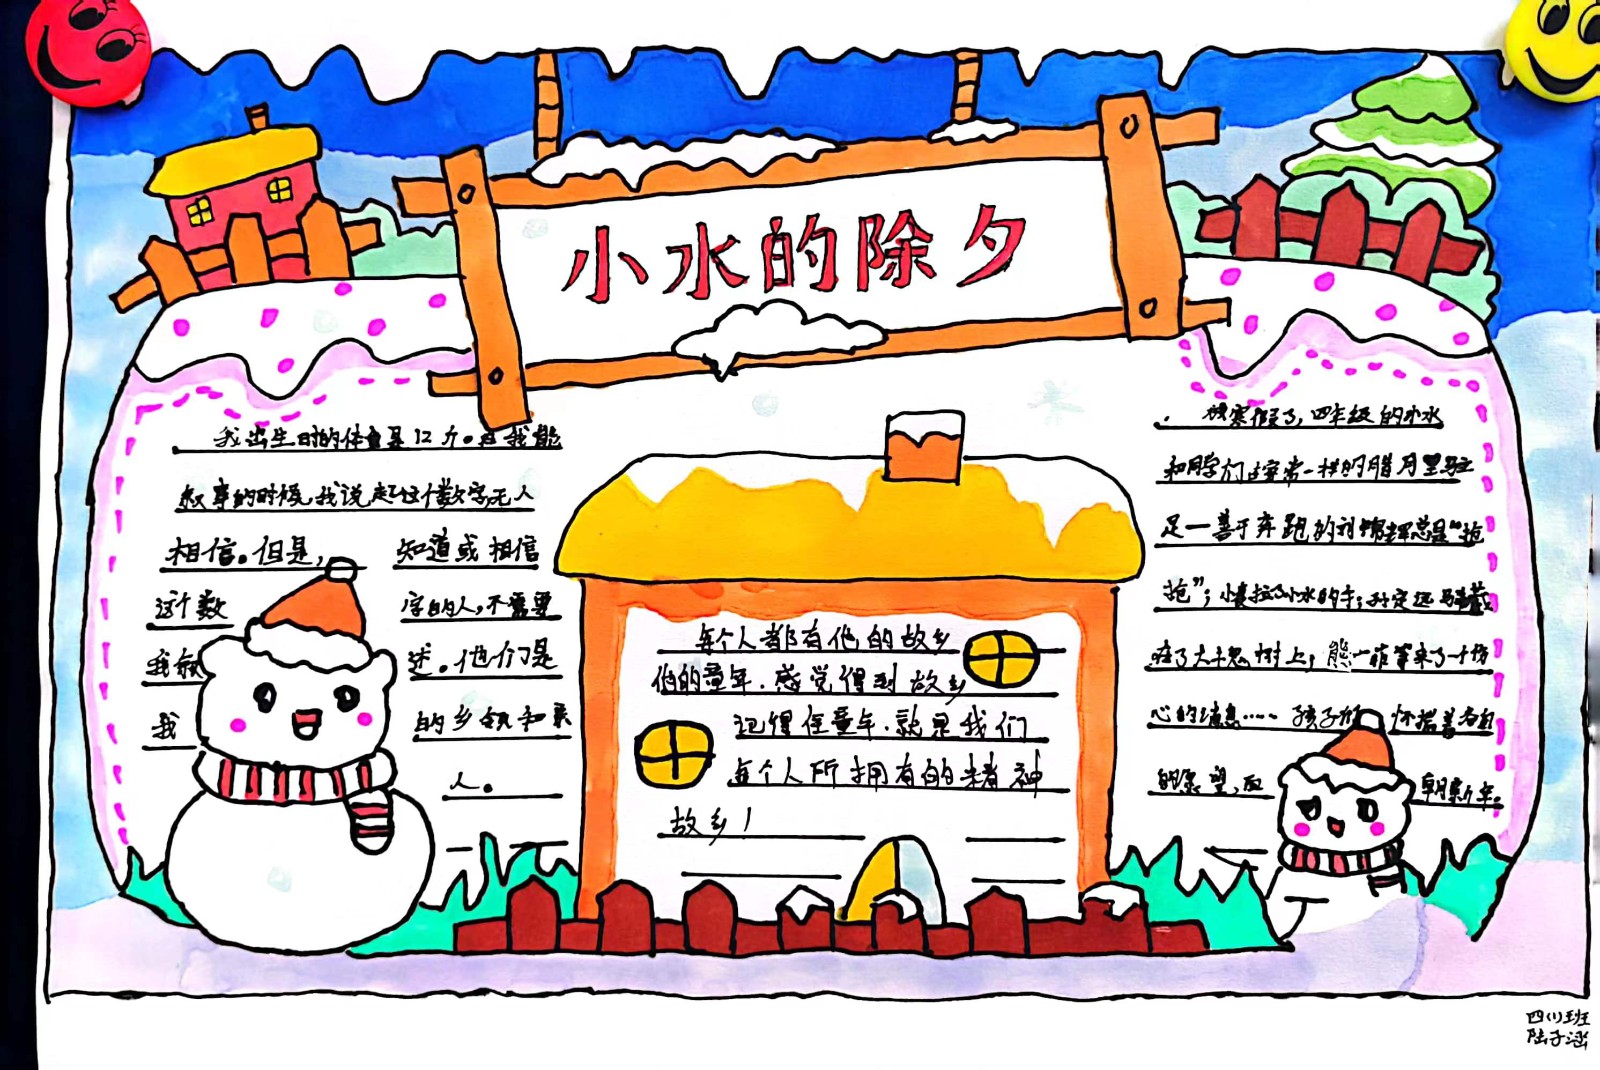 小水的除夕
我出生时的体重是12斤。当我能
叙事的时候,我说起这个数字,无人
相信。但是, 知道或相信
这个数 字的人,不需要
我叙 述。他们是
我 的乡邻和亲
人。
每个人都有他的故乡
他的童年.感觉得到故乡
记得住童年.就是我们
每个人所拥有的精神
故乡!
放寒假了,四年级的小水
和同学们像往常一样的腊月里
足一善于奔跑的刘锦辉总是“抢
抢”;小麦拉了小水的手;孙定远
在了大槐树上;熊一菲带来了个
心的消息…… 孩子们 怀揣着各自
的愿望,
新年。
四(1)班
陆子涵